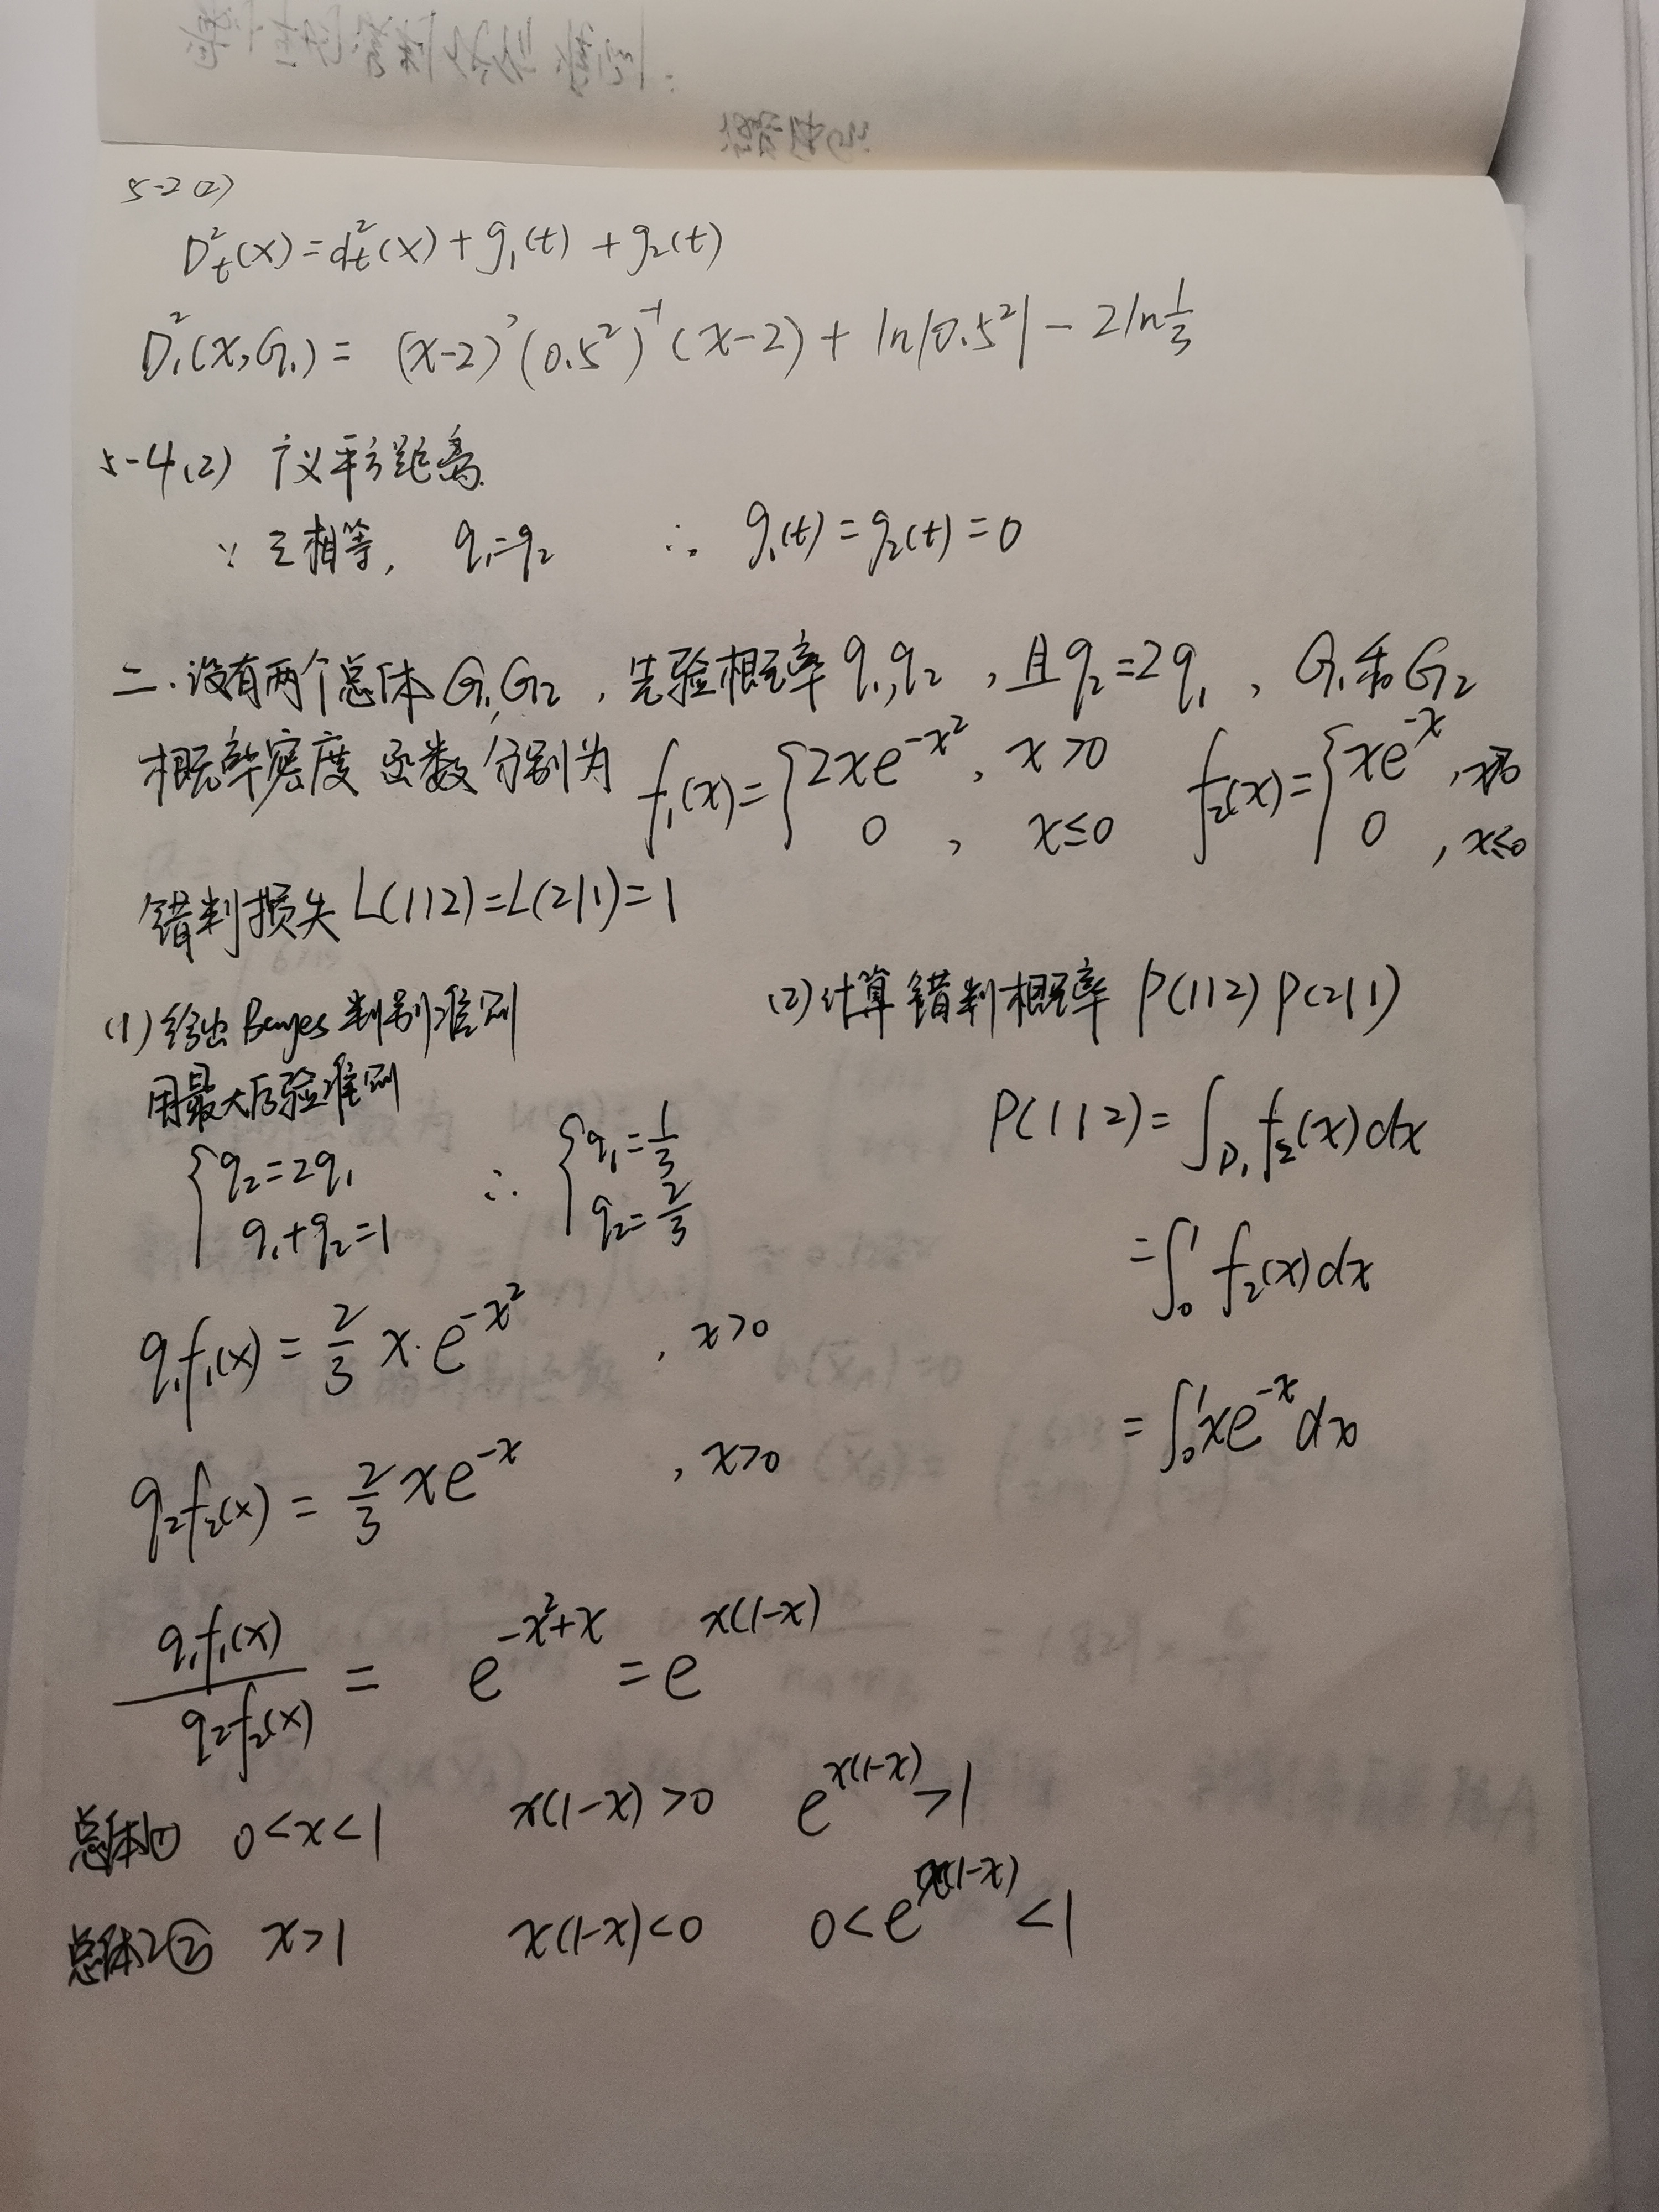 5-2(2)
D²ₜ(x)=d²ₜ(x)+g₁(t)+g₂(t)
D₁²(x,G₁)= (x-2)'(0.5²)⁻¹(x-2)+ln|0.5²|-2ln1/3
5-4(2) 广义平方距离
∵ Σ相等, q₁=q₂ ∴ g₁(t)=g₂(t)=0
二.设有两个总体G₁,G₂,先验概率q₁,q₂,且q₂=2q₁,G₁和G₂
概率密度函数分别为 f₁(x)={2xe^{-x²}, x>0 f₂(x)={xe^{-x}, x>0
0, x≤0 0, x≤0
错判损失L(1|2)=L(2|1)=1
(1)给出Bayes判别准则
用最大后验准则
{q₂=2q₁ ∴ {q₁=1/3
q₁+q₂=1 q₂=2/3
q₁f₁(x)=2/3 x·e^{-x²}, x>0
q₂f₂(x)=2/3 xe^{-x}, x>0
q₁f₁(x)/q₂f₂(x) = e^{-x²+x}=e^{x(1-x)}
总体1① 0<x<1 x(1-x)>0 e^{x(1-x)}>1
总体2② x>1 x(1-x)<0 0<e^{x(1-x)}<1
(2)计算错判概率 P(1|2) P(2|1)
P(1|2)=∫_{D₁}f₂(x)dx
=∫₀¹f₂(x)dx
=∫₀¹xe^{-x}dx